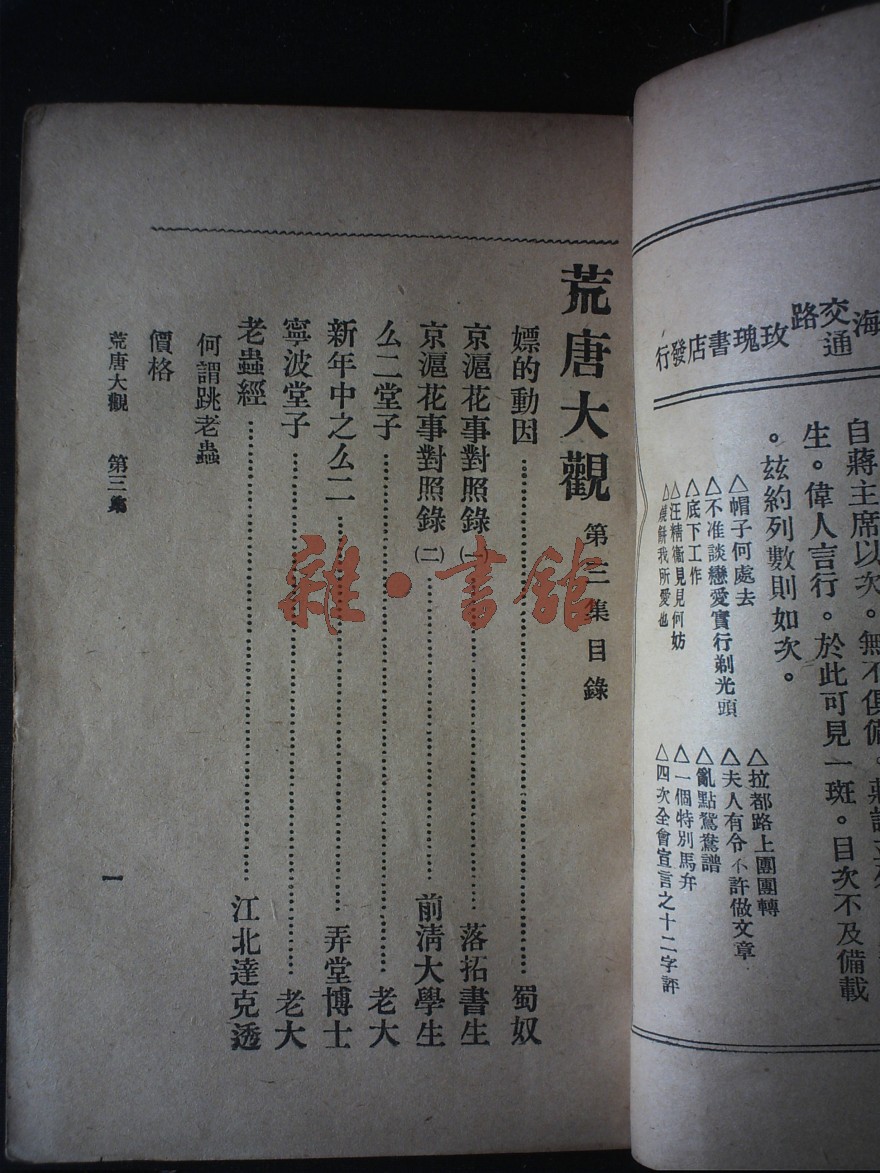 海交通路玫瑰書店發行
自蔣主席以次。無不俱備。
生。偉人言行。於此可見一斑。目次不及備載
。玆約列數則如次。
△帽子何處去
△不准談戀愛實行剃光頭
△底下工作
△汪精衞見見何妨
△燒餅我所愛也
△拉都路上團團轉
△夫人有令不許做文章
△亂點鴛鴦譜
△一個特別馬弁
△四次全會宣言之十二字評
荒唐大觀 第三集目錄
嫖的動因 蜀奴
京滬花事對照錄(一) 落拓書生
京滬花事對照錄(二) 前淸大學生
么二堂子 老大
新年中之么二 弄堂博士
寧波堂子 老大
老蟲經 江北達克透
何謂跳老蟲
價格
荒唐大觀 第三集
一
雜·書館